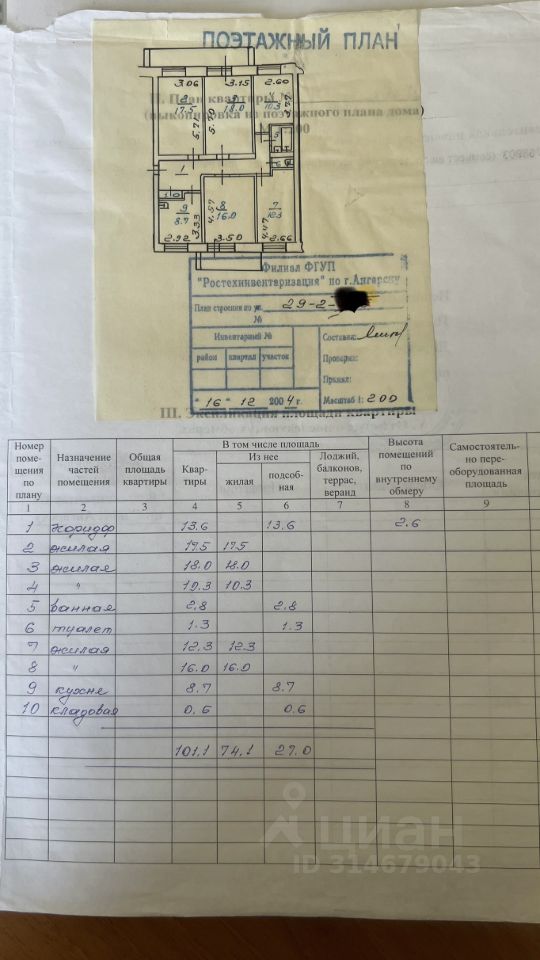 ПОЭТАЖНЫЙ ПЛАН
II. План квартиры №
(выкопировка из поэтажного плана дома)
3.06 3.15 2.60
2 17.5 5.71
3 18.0 5.70
4 10.3 3.97
5
6
1
10
9 8.7 3.33
4.57 8 16.0
7 12.3 4.47
2.92 3.50 2.66
Филиал ФГУП
"Ростехинвентаризация" по г.Ангарску
План строения по ул. 29-2-
№
Инвентарный №
район квартал участок
Составил:
Проверил:
Принял:
"16" 12 2004 г. Масштаб 1: 200
III. Экспликация площади квартиры
Номер помещения по плану
Назначение частей помещения
Общая площадь квартиры
В том числе площадь
Квартиры
Из нее
жилая
подсобная
Лоджий, балконов, террас, веранд
Высота помещений по внутреннему обмеру
Самостоятельно переоборудованная площадь
1 2 3 4 5 6 7 8 9
1 коридор 13.6 13.6 2.6
2 жилая 17.5 17.5
3 жилая 18.0 18.0
4 " 10.3 10.3
5 ванная 2.8 2.8
6 туалет 1.3 1.3
7 жилая 12.3 12.3
8 " 16.0 16.0
9 кухне 8.7 8.7
10 кладовая 0.6 0.6
101.1 74.1 27.0
циан
ID 314679043